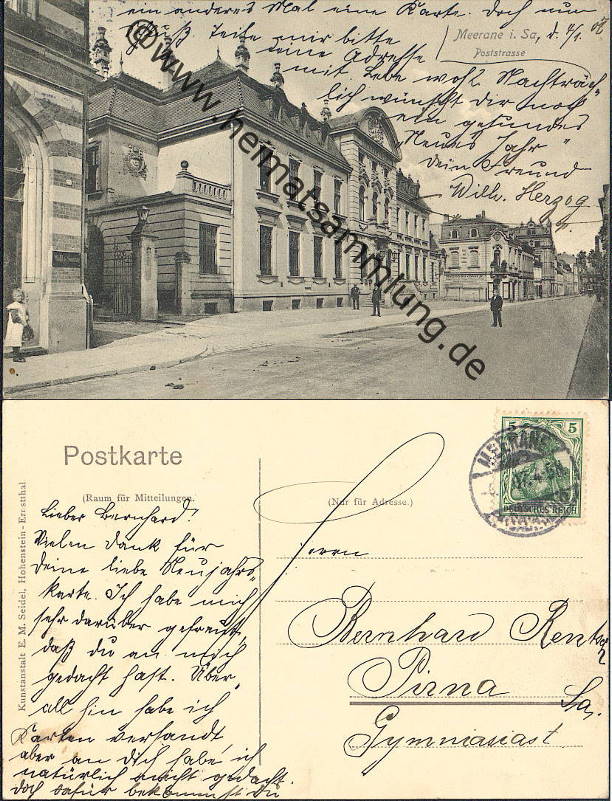 ein anderes Mal eine Karte. Doch nun
Gruß Teile mir bitte
deine Adresse
mit Lebe wohl Nachträch-
lich wünscht dir noch
ein gesundes
"Neues Jahr"
Dein Freund
Willy Herzog
Meerane i. Sa, d. 4/1. 08
Poststrasse
@www.heimatsammlung.de
Postkarte
(Raum für Mitteilungen.
(Nur für Adresse.)
Kunstanstalt E. M. Seidel, Hohenstein-Ernstthal
Lieber Bernhard!
Vielen Dank für
deine liebe Neujahrs-
karte. Ich habe mich
sehr darüber gefreut,
daß du an mich
gedacht hast. Über-
all hin habe ich
Karten versandt
aber an Dich habe ich
natürlich nicht gedacht.
Doch dafür bekommst Du
5 5
DEUTSCHES REICH
MEERANE
Herrn
Bernhard
Pirna Sa.
Gymnasiast